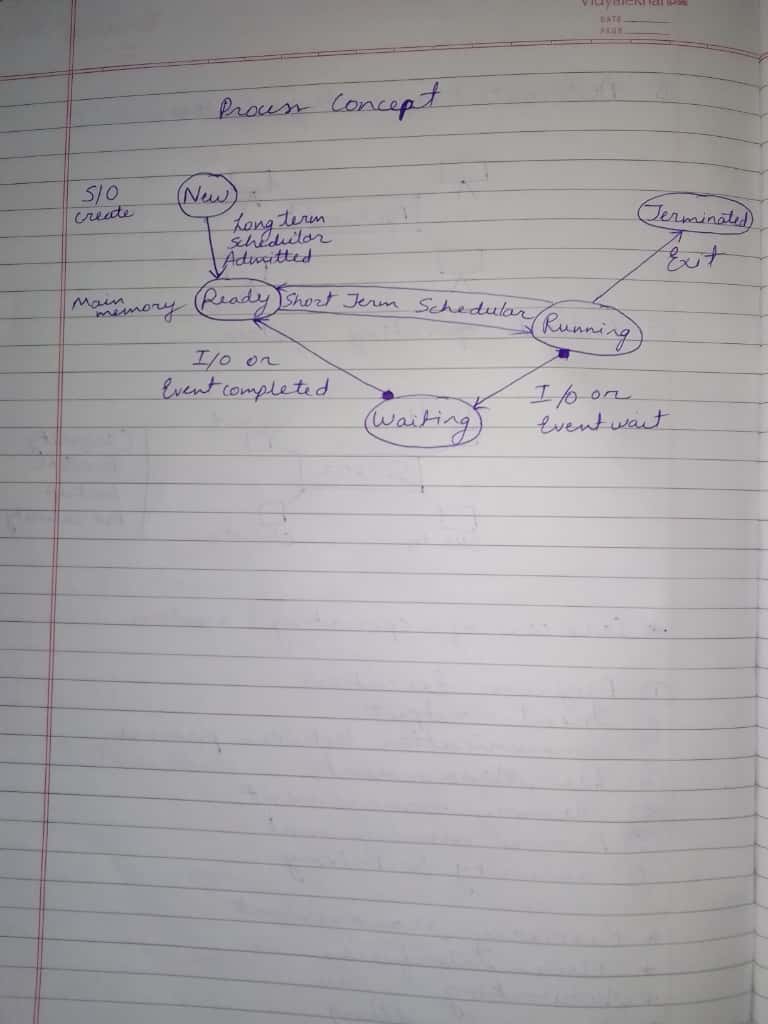 DATE
PAGE
Process Concept
S/O
create
New
Long term
Schedular
Admitted
Terminated
Exit
Main
memory
Ready
Short Term Schedular
Running
I/O or
Event completed
Waiting
I/O or
Event wait